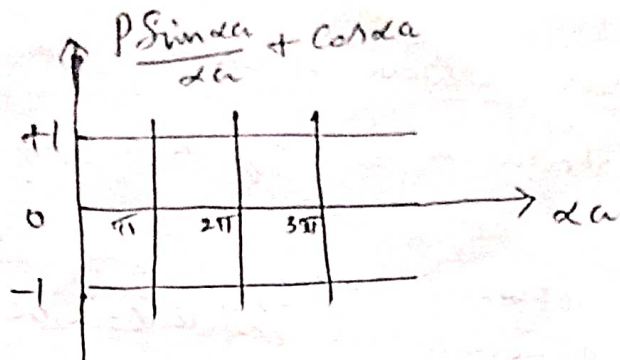 P Sin αa / αa + Cos αa
+1
0 π 2π 3π αa
-1